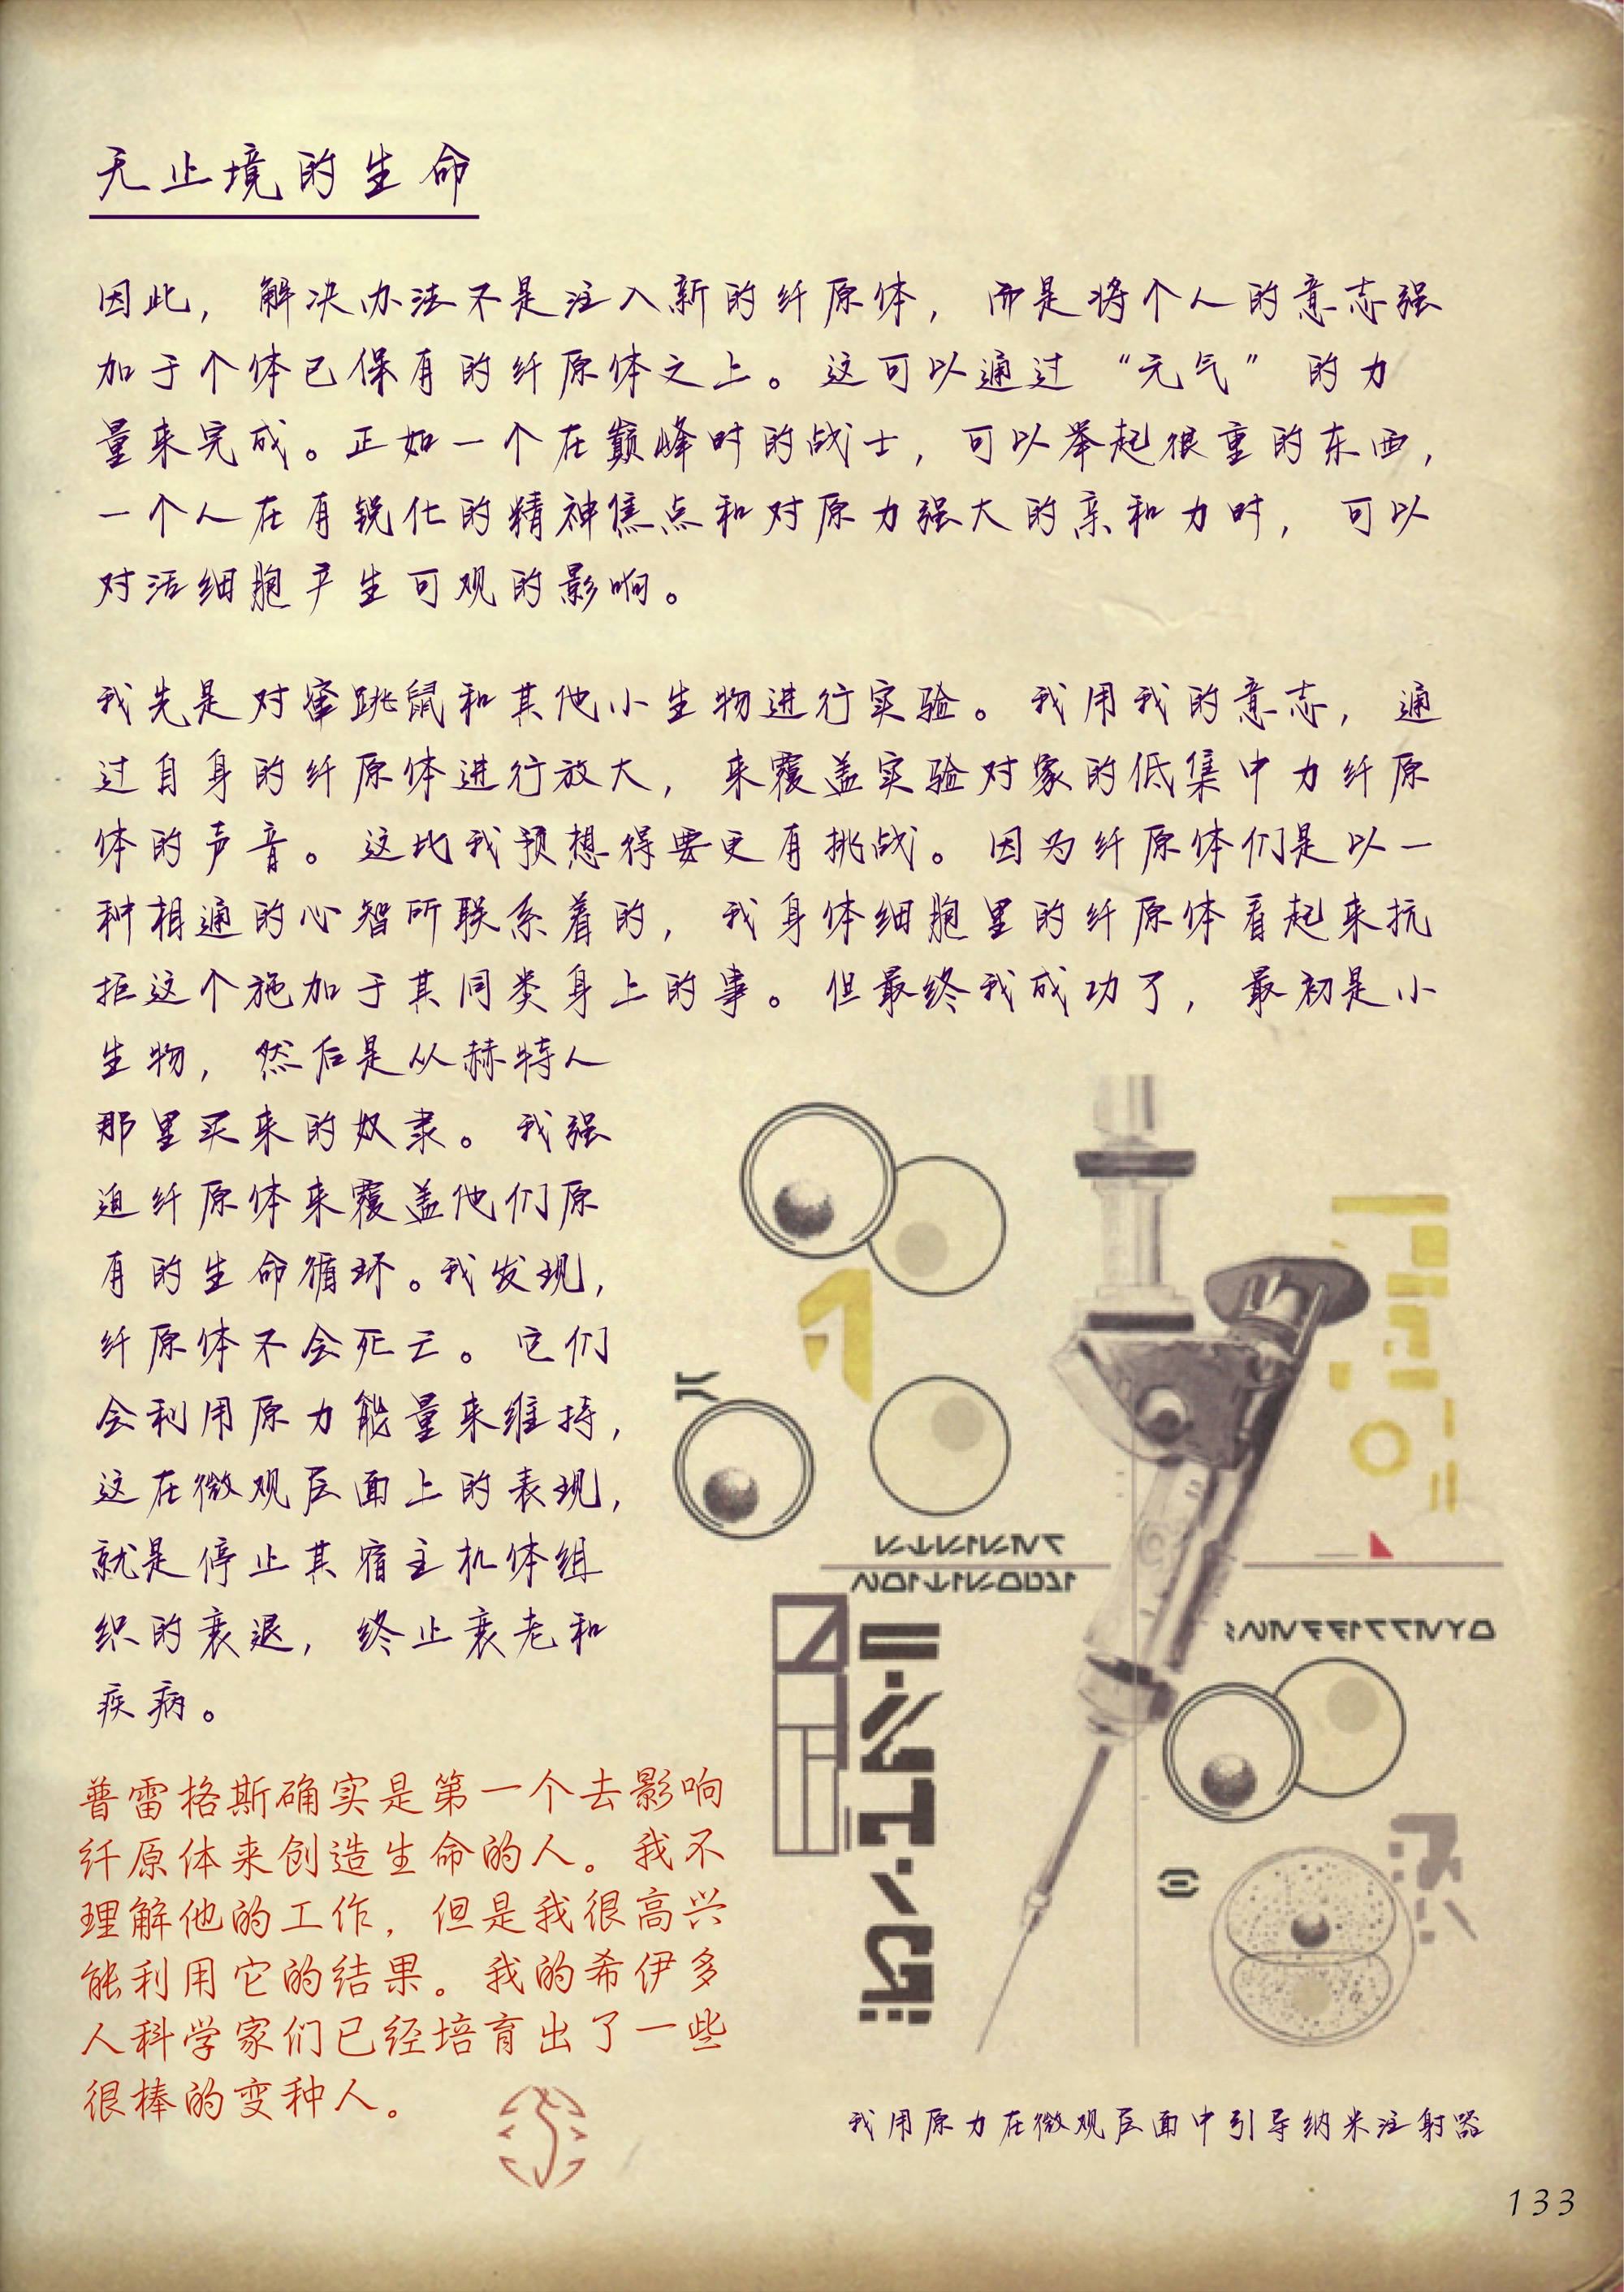 无止境的生命
因此，解决办法不是注入新的纤原体，而是将个人的意志强
加于个体已保有的纤原体之上。这可以通过“元气”的力
量来完成。正如一个在巅峰时的战士，可以举起很重的东西，
一个人在有锐化的精神焦点和对原力强大的亲和力时，可以
对活细胞产生可观的影响。
我先是对窜跳鼠和其他小生物进行实验。我用我的意志，通
过自身的纤原体进行放大，来覆盖实验对象的低集中力纤原
体的声音。这比我预想得要更有挑战。因为纤原体们是以一
种相通的心智所联系着的，我身体细胞里的纤原体看起来抗
拒这个施加于其同类身上的事。但最终我成功了，最初是小
生物，然后是从赫特人
那里买来的奴隶。我强
迫纤原体来覆盖他们原
有的生命循环。我发现，
纤原体不会死亡。它们
会利用原力能量来维持，
这在微观层面上的表现，
就是停止其宿主机体组
织的衰退，终止衰老和
疾病。
普雷格斯确实是第一个去影响
纤原体来创造生命的人。我不
理解他的工作，但是我很高兴
能利用它的结果。我的希伊多
人科学家们已经培育出了一些
很棒的变种人。
我用原力在微观层面中引导纳米注射器
133